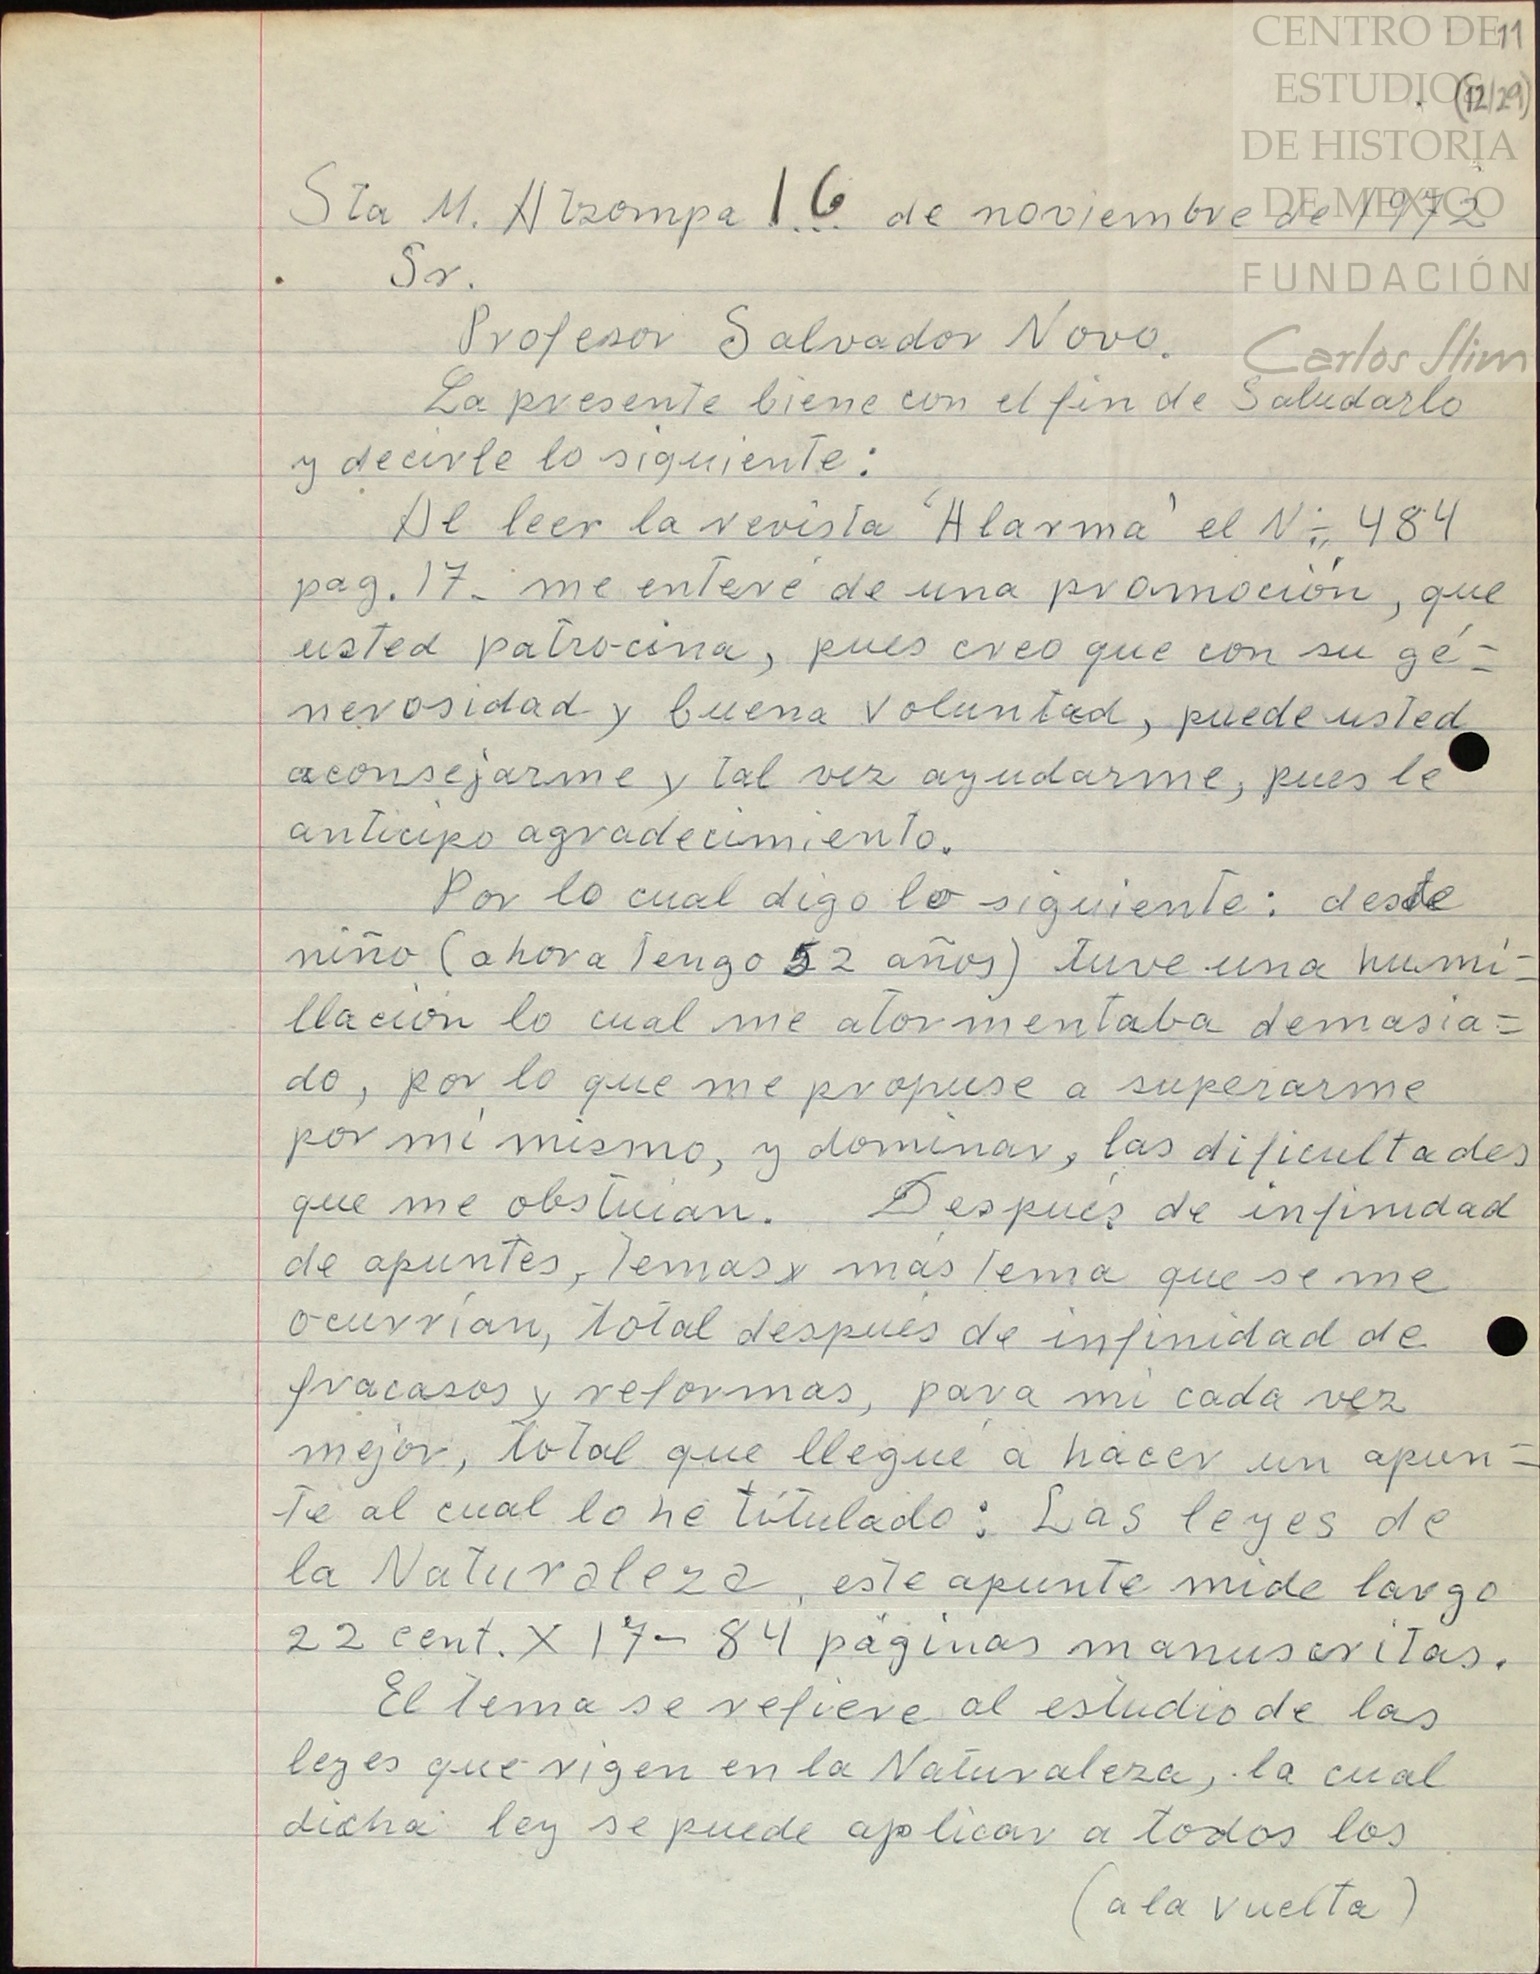 CENTRO DE
ESTUDIOS
DE HISTORIA
DE MEXICO
FUNDACIÓN
Carlos Slim
11
(12/29)
Sta M. Atzompa 16 de noviembre de 1972
Sr.
Profesor Salvador Novo.
La presente biene con el fin de Saludarlo
y decirle lo siguiente:
Al leer la revista 'Alarma' el N° 484
pag. 17- me enteré de una promoción, que
usted patrocina, pues creo que con su gé=
nerosidad y buena voluntad, puede usted
aconsejarme y tal vez ayudarme, pues le
anticipo agradecimiento.
Por lo cual digo lo siguiente: desde
niño (ahora tengo 52 años) tuve una humi=
llación lo cual me atormentaba demasia=
do, por lo que me propuse a superarme
por mí mismo, y dominar, las dificultades
que me obstuían. Después de infinidad
de apuntes, temas y más tema que se me
ocurrían, total después de infinidad de
fracasos y reformas, para mi cada vez
mejor, total que llegué a hacer un apun=
te al cual lo he titulado: Las leyes de
la Naturaleza, este apunte mide largo
22 cent. X 17- 84 páginas manuscritas.
El tema se refiere al estudio de las
leyes que rigen en la Naturaleza, la cual
dicha ley se puede aplicar a todos los
(a la vuelta)